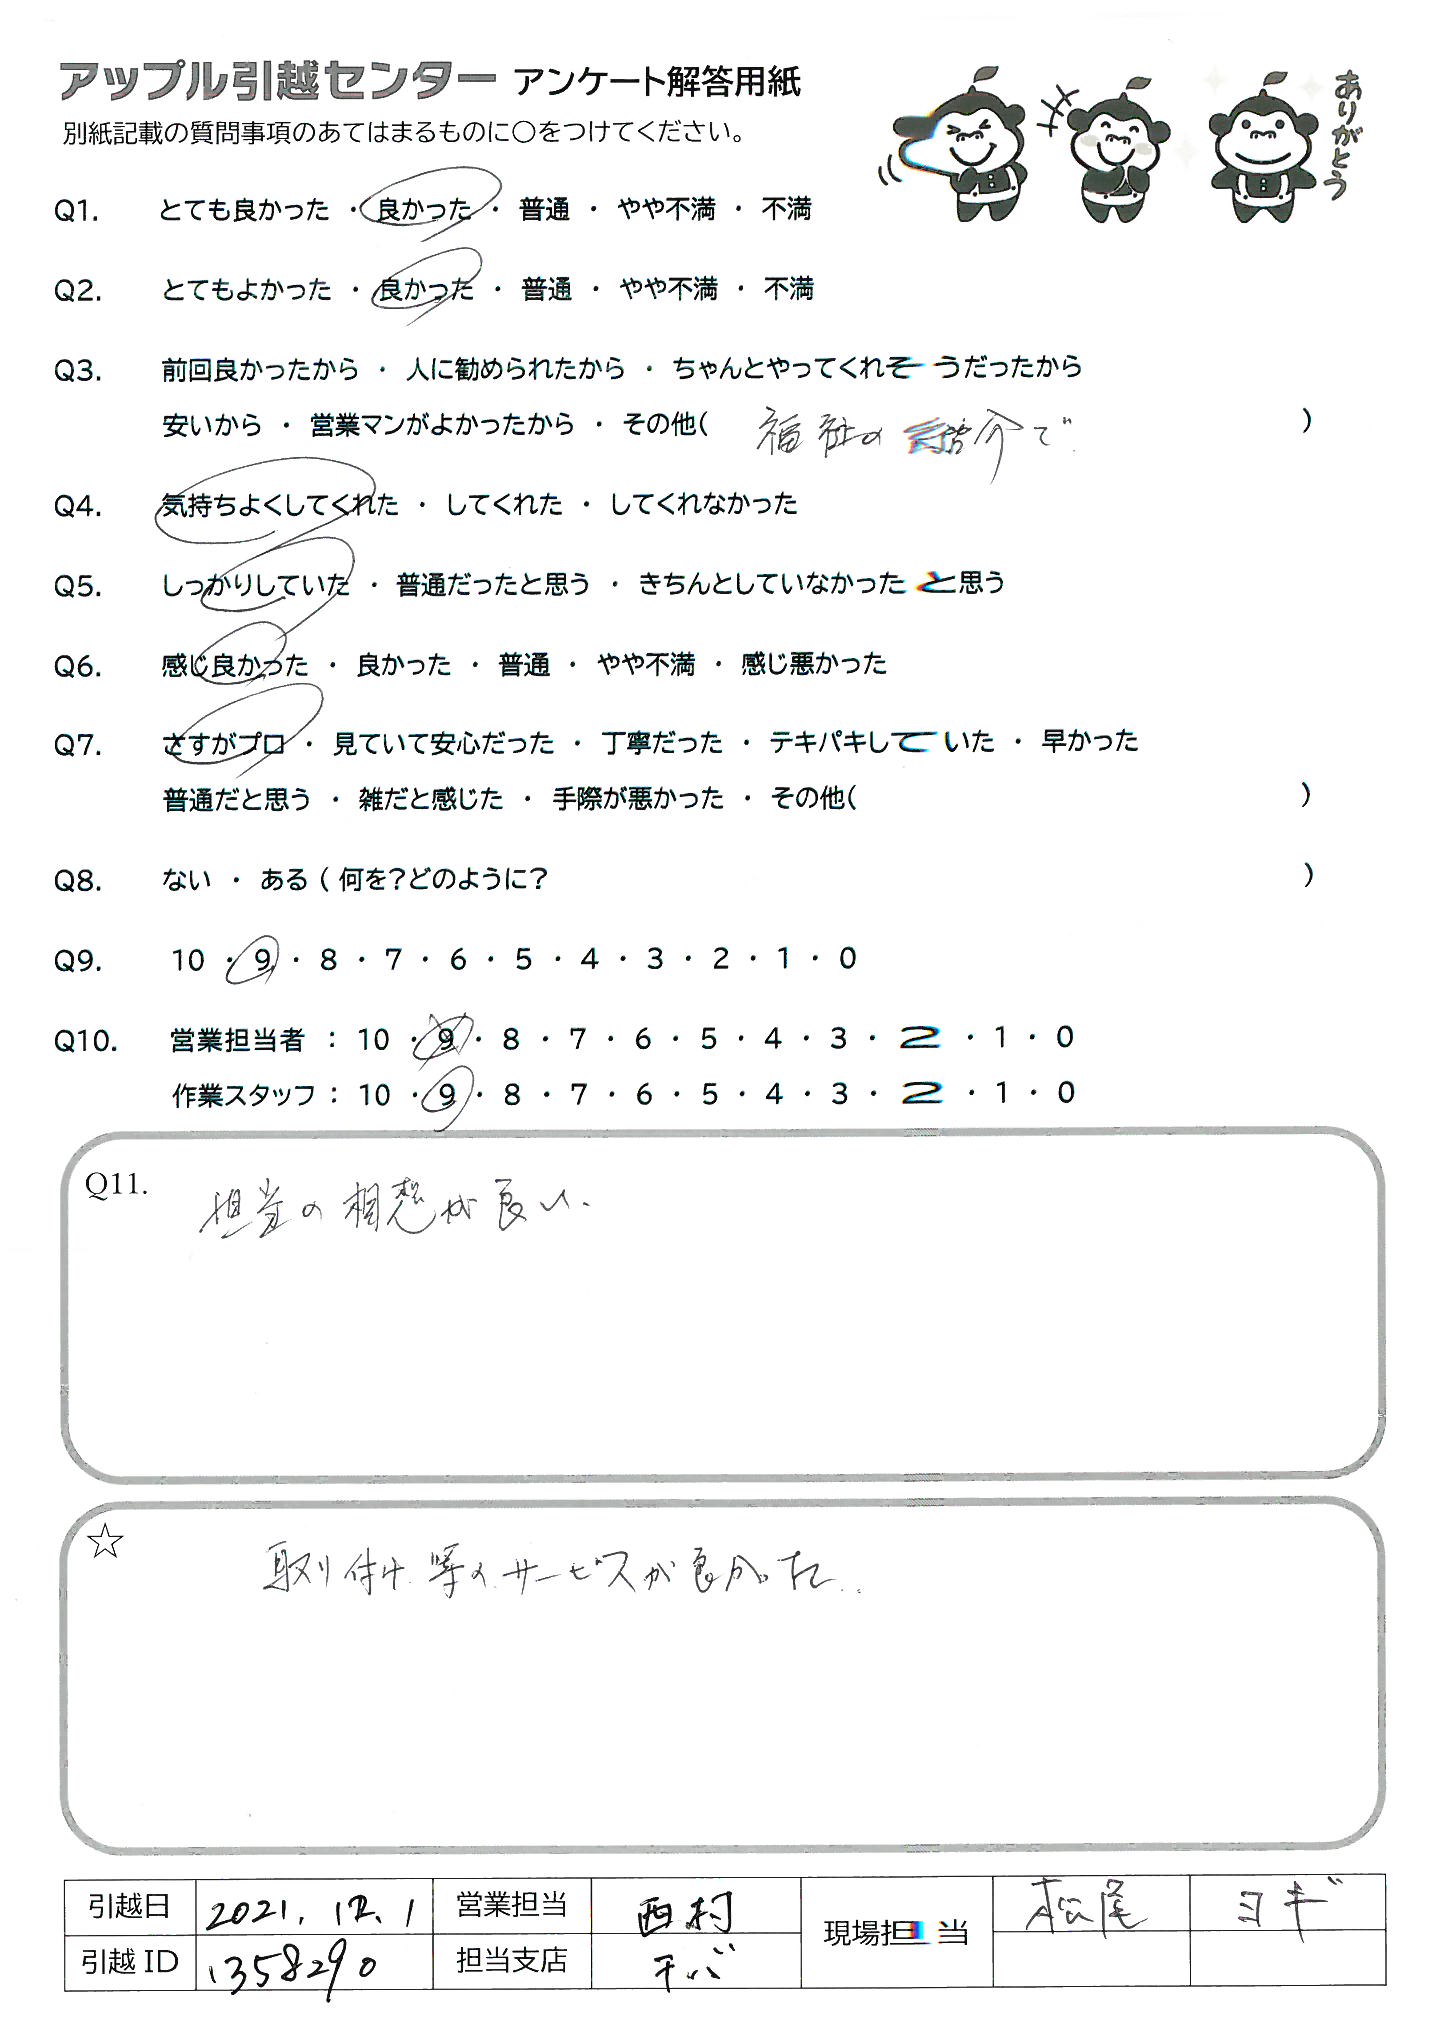 アップル引越センター アンケート解答用紙
ありがとう
別紙記載の質問事項のあてはまるものに○をつけてください。
Q1. とても良かった ・ 良かった ・ 普通 ・ やや不満 ・ 不満
Q2. とてもよかった ・ 良かった ・ 普通 ・ やや不満 ・ 不満
Q3. 前回良かったから ・ 人に勧められたから ・ ちゃんとやってくれそうだったから
安いから ・ 営業マンがよかったから ・ その他( 福祉の紹介で )
Q4. 気持ちよくしてくれた ・ してくれた ・ してくれなかった
Q5. しっかりしていた ・ 普通だったと思う ・ きちんとしていなかったと思う
Q6. 感じ良かった ・ 良かった ・ 普通 ・ やや不満 ・ 感じ悪かった
Q7. さすがプロ ・ 見ていて安心だった ・ 丁寧だった ・ テキパキしていた ・ 早かった
普通だと思う ・ 雑だと感じた ・ 手際が悪かった ・ その他( )
Q8. ない ・ ある ( 何を?どのように? )
Q9. 10 ・ 9 ・ 8 ・ 7 ・ 6 ・ 5 ・ 4 ・ 3 ・ 2 ・ 1 ・ 0
Q10. 営業担当者 : 10 ・ 9 ・ 8 ・ 7 ・ 6 ・ 5 ・ 4 ・ 3 ・ 2 ・ 1 ・ 0
作業スタッフ : 10 ・ 9 ・ 8 ・ 7 ・ 6 ・ 5 ・ 4 ・ 3 ・ 2 ・ 1 ・ 0
Q11. 担当の相想が良い、
☆ 取り付け等のサービスが良かった..
引越日 2021.12.1 営業担当 西村 現場担当 松尾 ヨギ
引越ID 1358290 担当支店 千バ